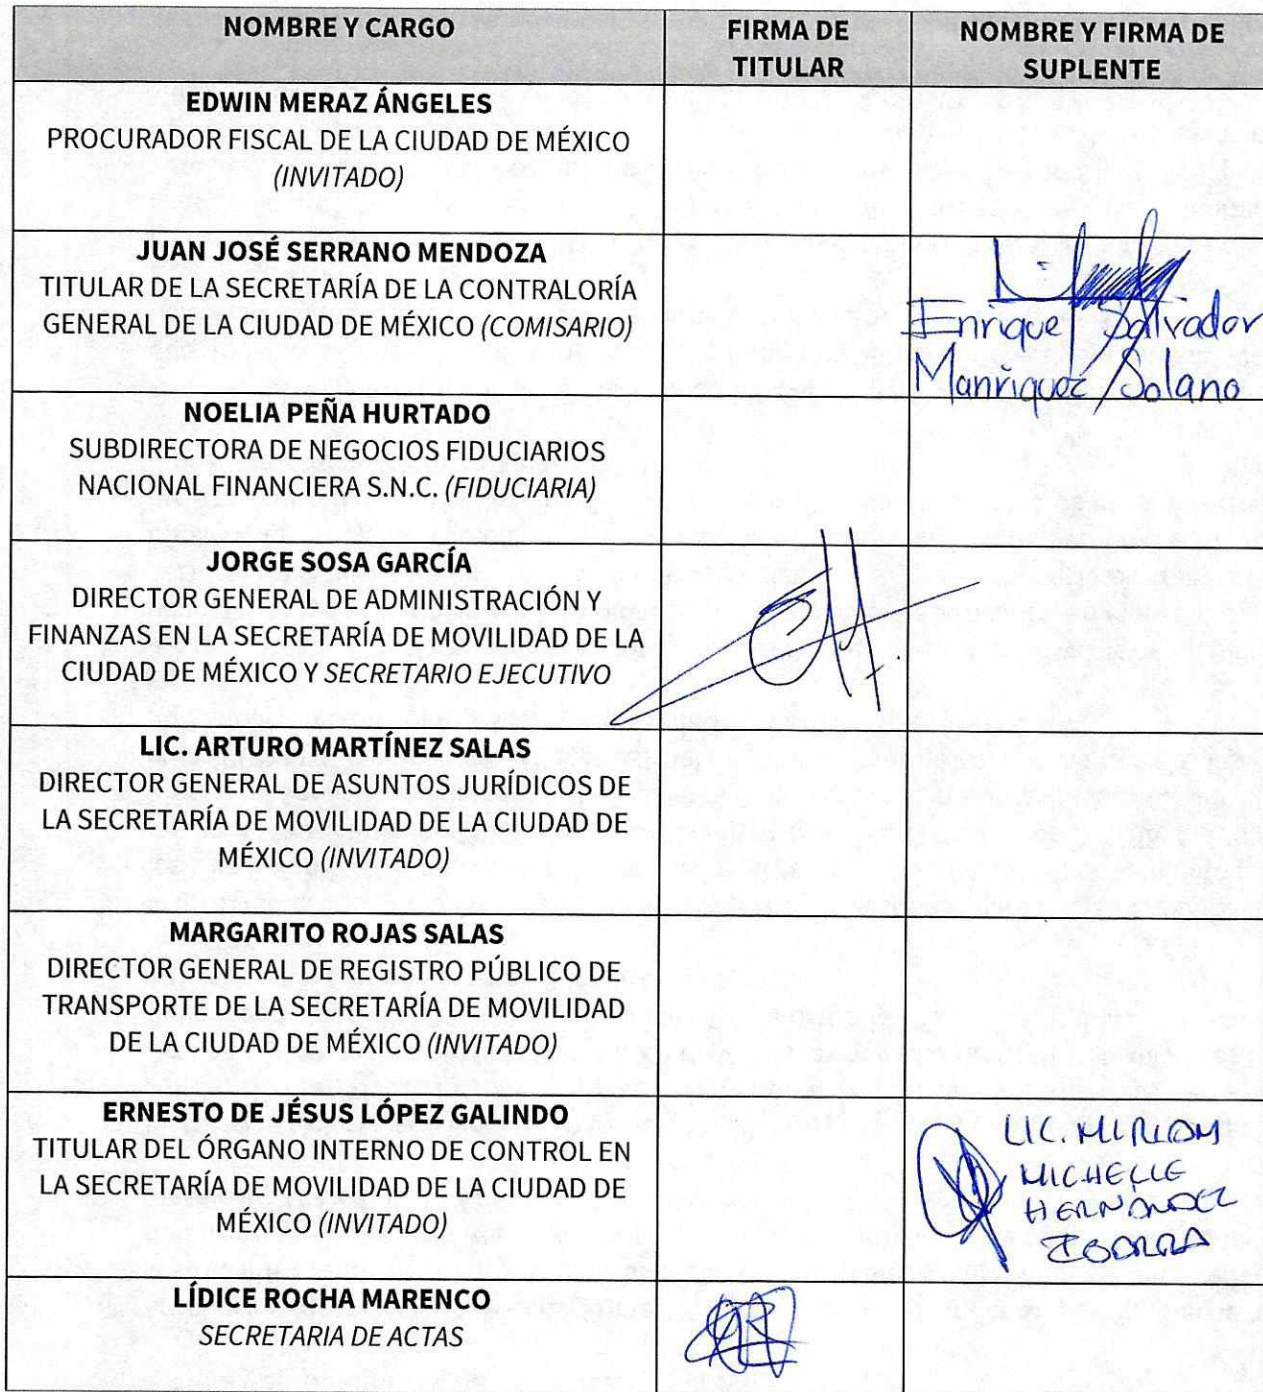 NOMBRE Y CARGO
FIRMA DE
TITULAR
NOMBRE Y FIRMA DE
SUPLENTE
EDWIN MERAZ ÁNGELES
PROCURADOR FISCAL DE LA CIUDAD DE MÉXICO
(INVITADO)
JUAN JOSÉ SERRANO MENDOZA
TITULAR DE LA SECRETARÍA DE LA CONTRALORÍA
GENERAL DE LA CIUDAD DE MÉXICO (COMISARIO)
Enrique Salvador
Manriquez Solano
NOELIA PEÑA HURTADO
SUBDIRECTORA DE NEGOCIOS FIDUCIARIOS
NACIONAL FINANCIERA S.N.C. (FIDUCIARIA)
JORGE SOSA GARCÍA
DIRECTOR GENERAL DE ADMINISTRACIÓN Y
FINANZAS EN LA SECRETARÍA DE MOVILIDAD DE LA
CIUDAD DE MÉXICO Y SECRETARIO EJECUTIVO
LIC. ARTURO MARTÍNEZ SALAS
DIRECTOR GENERAL DE ASUNTOS JURÍDICOS DE
LA SECRETARÍA DE MOVILIDAD DE LA CIUDAD DE
MÉXICO (INVITADO)
MARGARITO ROJAS SALAS
DIRECTOR GENERAL DE REGISTRO PÚBLICO DE
TRANSPORTE DE LA SECRETARÍA DE MOVILIDAD
DE LA CIUDAD DE MÉXICO (INVITADO)
ERNESTO DE JÉSUS LÓPEZ GALINDO
TITULAR DEL ÓRGANO INTERNO DE CONTROL EN
LA SECRETARÍA DE MOVILIDAD DE LA CIUDAD DE
MÉXICO (INVITADO)
LIC. MIRIAM
MICHELLE
HERNÁNDEZ
LÍDICE ROCHA MARENCO
SECRETARIA DE ACTAS